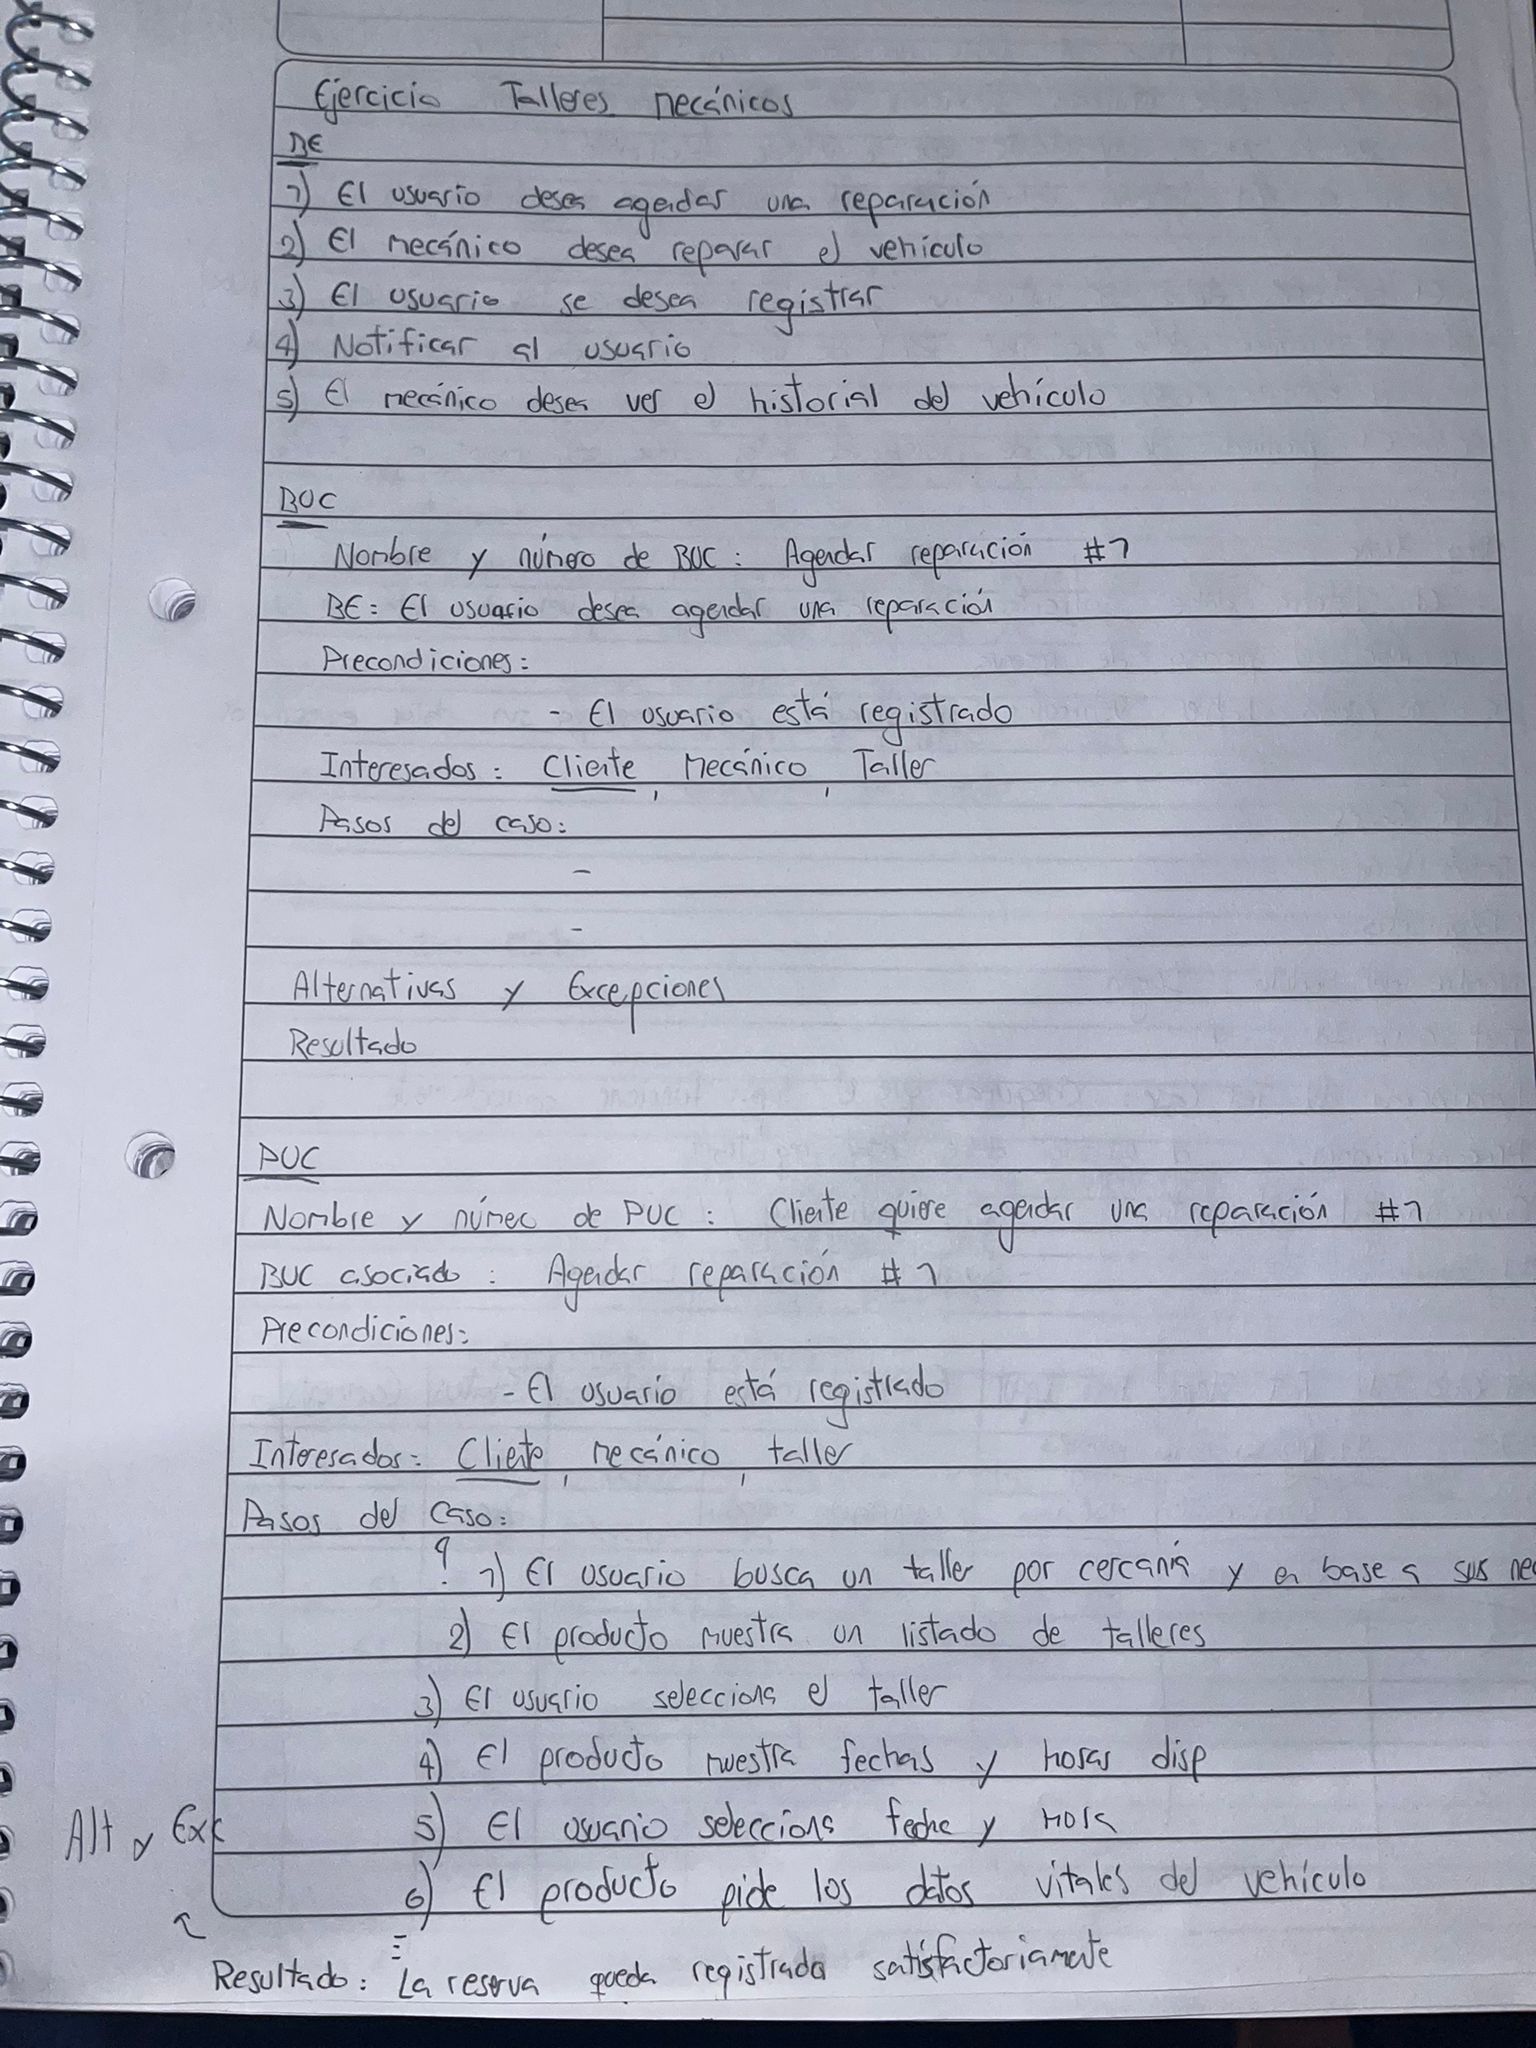 Ejercicio Talleres mecánicos
BE
1) El usuario desea agendar una reparación
2) El mecánico desea reparar el vehículo
3) El usuario se desea registrar
4) Notificar al usuario
5) El mecánico desea ver el historial del vehículo
BUC
Nombre y número de BUC: Agendar reparación #1
BE: El usuario desea agendar una reparación
Precondiciones:
- El usuario está registrado
Interesados: Cliente, Mecánico, Taller
Pasos del caso:
-
-
Alternativas y Excepciones
Resultado
PUC
Nombre y número de PUC: Cliente quiere agendar una reparación #1
BUC asociado: Agendar reparación #1
Precondiciones:
- El usuario está registrado
Interesados: Cliente, mecánico, taller
Pasos del caso:
? 1) El usuario busca un taller por cercanía y en base a sus
2) El producto muestra un listado de talleres
3) El usuario selecciona el taller
4) El producto muestra fechas y horas disp
5) El usuario selecciona fecha y hora
Alt y Exc
6) El producto pide los datos vitales del vehículo
Resultado: La reserva queda registrada satisfactoriamente